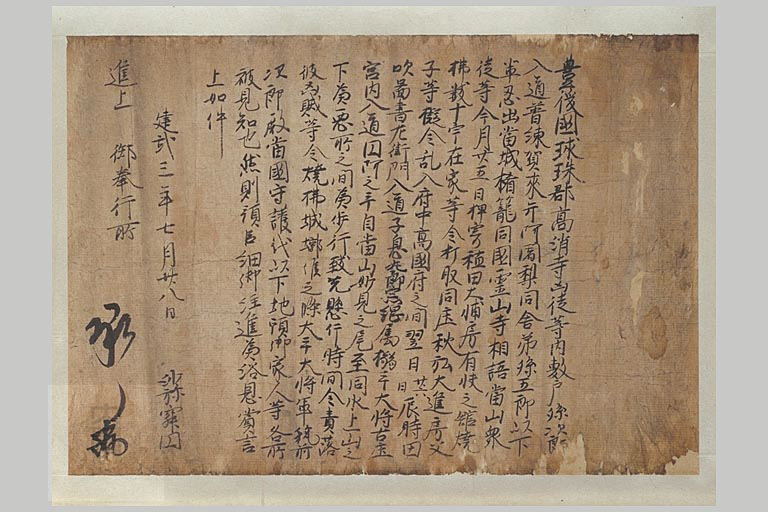 豊後国球珠郡高消寺凶徒等内敷戸孫次郎
入道普練賀来弁阿闍梨同舎弟孫五郎以下
輩忍出当城楯籠同国霊山寺相語当山衆
徒等今月廿五日押寄稙田大輔房有快之館焼
払数十宇在家等令打取同庄秋弘大進房父
子等擬令乱入府中高国府之間翌日廿六日辰時田
吹菡書左衛門入道子息
宮内入道 之手自当山妙見之尾至同水上山之
下為悪所之間為歩行致先懸片時間令責落
彼凶賊等令焼払城墎候之条大平大将軍
次郎殿当国守護代以下地頭御家人等各所
被見知也然則預巨細御注進為浴恩賞言
上如件
建武三年七月廿八日
進上 御奉行所
承了